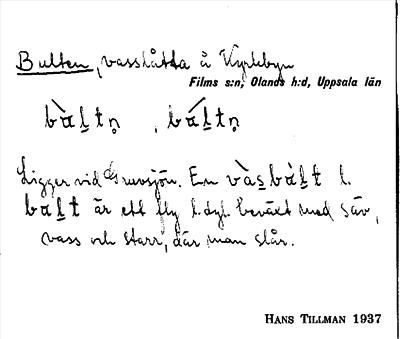 Bulten, vasslåtta å Kyrkbyn
Films s:n, Olands h:d, Uppsala län
bὰḻtṇ , báḻtṇ
Ligger vid Gruvsjön. En vὰs̱bὰḻt l.
baḻt är ett fly l. dyl. beväxt med säv,
vass och starr, där man slår.
HANS TILLMAN 1937